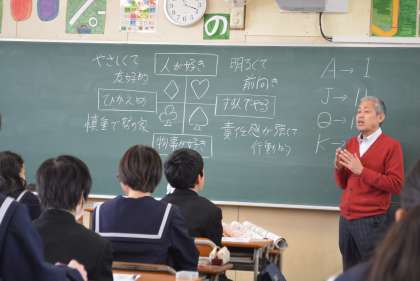 の
やさしくて
友好的
人が好き
明るくて
前向き
ひかえめ
すんでやる
慎重で努力家
物事が好き
責任感が強くて
行動的
A→1
J→11
Q→
K→